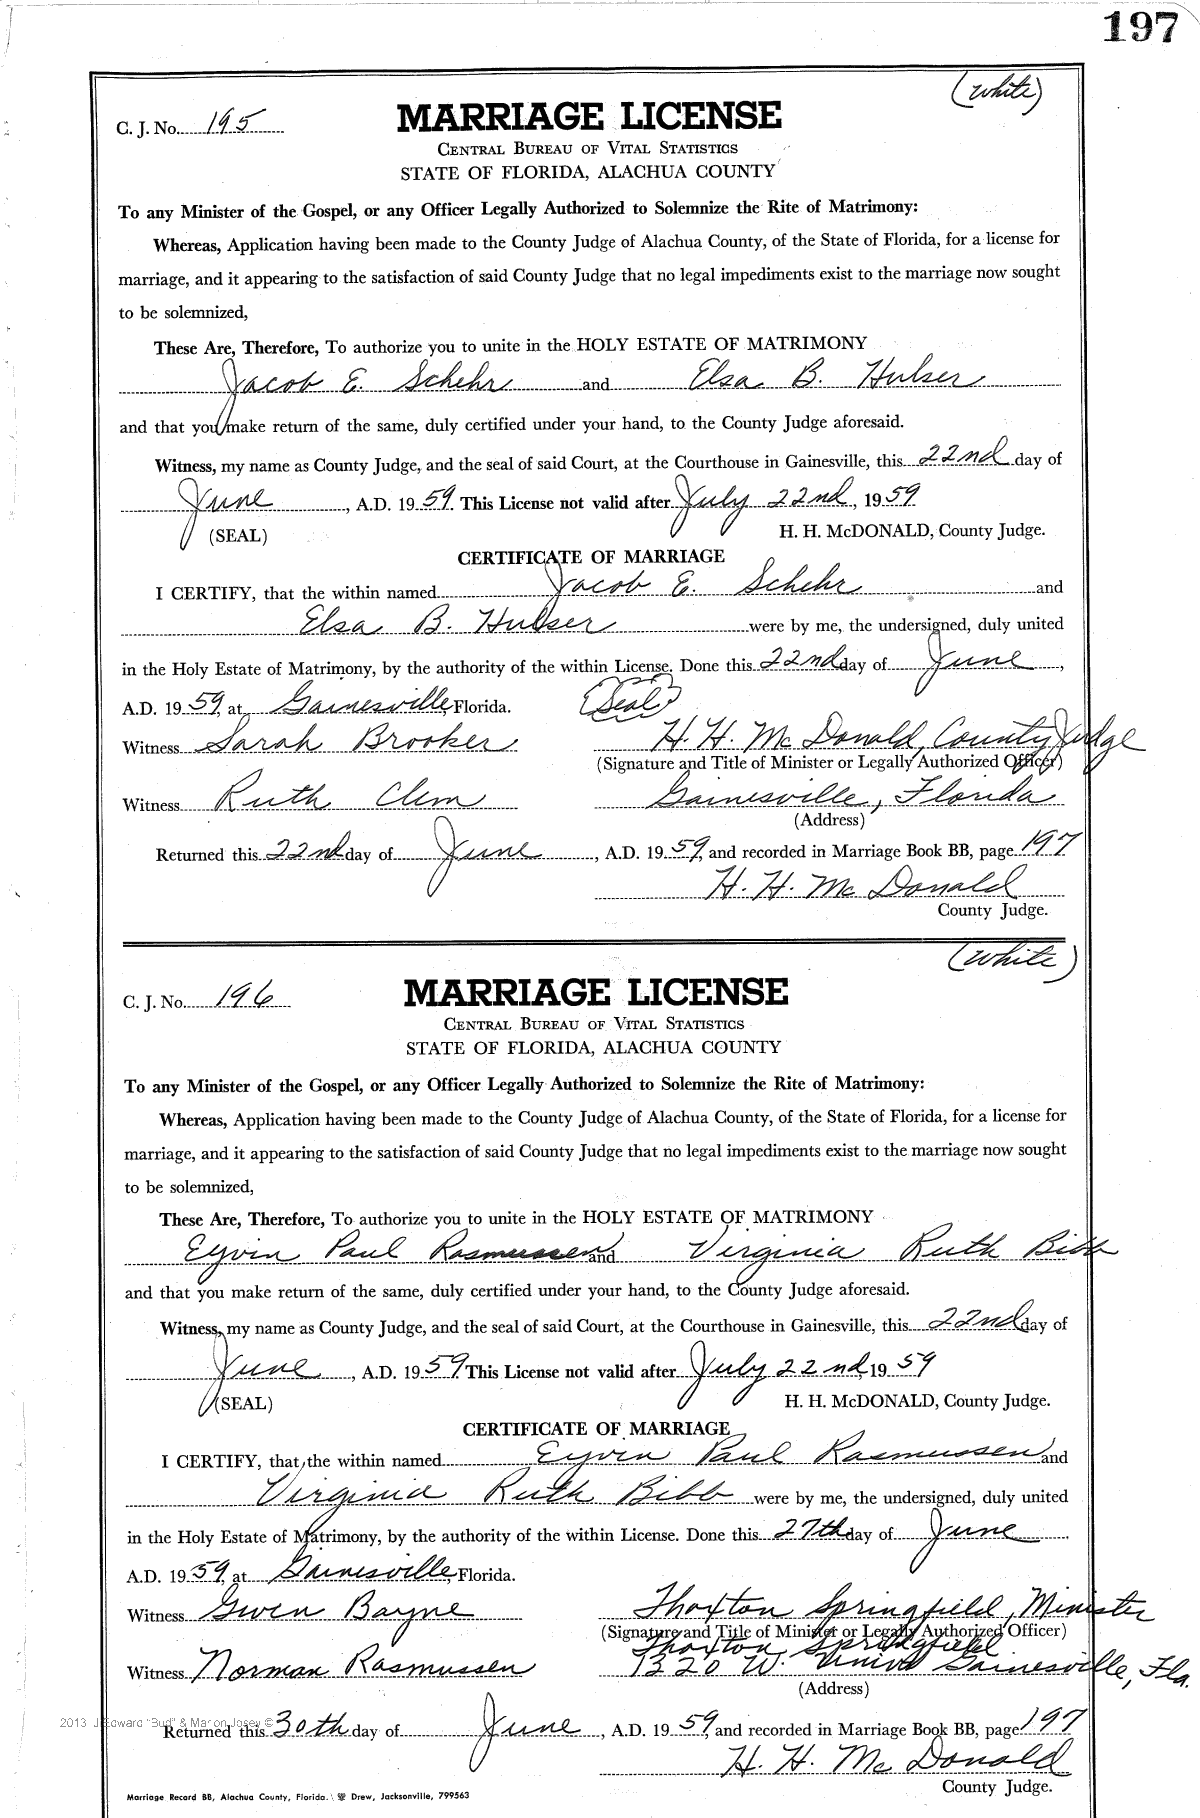 197
(white)
C. J. No. 195
MARRIAGE LICENSE
CENTRAL BUREAU OF VITAL STATISTICS
STATE OF FLORIDA, ALACHUA COUNTY
To any Minister of the Gospel, or any Officer Legally Authorized to Solemnize the Rite of Matrimony:
Whereas, Application having been made to the County Judge of Alachua County, of the State of Florida, for a license for
marriage, and it appearing to the satisfaction of said County Judge that no legal impediments exist to the marriage now sought
to be solemnized,
These Are, Therefore, To authorize you to unite in the HOLY ESTATE OF MATRIMONY
Jacob E. Schehr and Elsa B. Hulser
and that you make return of the same, duly certified under your hand, to the County Judge aforesaid.
Witness, my name as County Judge, and the seal of said Court, at the Courthouse in Gainesville, this 22nd day of
June, A.D. 1959. This License not valid after July 22nd, 1959
(SEAL) H. H. McDONALD, County Judge.
CERTIFICATE OF MARRIAGE
I CERTIFY, that the within named Jacob E. Schehr and
Elsa B. Hulser were by me, the undersigned, duly united
in the Holy Estate of Matrimony, by the authority of the within License. Done this 22nd day of June,
A.D. 1959, at Gainesville, Florida. (Seal)
Witness Sarah Brooker H. H. McDonald, County Judge
(Signature and Title of Minister or Legally Authorized Officer)
Witness Ruth Clem Gainesville, Florida
(Address)
Returned this 22nd day of June, A.D. 1959, and recorded in Marriage Book BB, page 197
H. H. McDonald
County Judge.
(white)
C. J. No. 196
MARRIAGE LICENSE
CENTRAL BUREAU OF VITAL STATISTICS
STATE OF FLORIDA, ALACHUA COUNTY
To any Minister of the Gospel, or any Officer Legally Authorized to Solemnize the Rite of Matrimony:
Whereas, Application having been made to the County Judge of Alachua County, of the State of Florida, for a license for
marriage, and it appearing to the satisfaction of said County Judge that no legal impediments exist to the marriage now sought
to be solemnized,
These Are, Therefore, To authorize you to unite in the HOLY ESTATE OF MATRIMONY
Eyvin Paul Rasmussen and Virginia Ruth Bibb
and that you make return of the same, duly certified under your hand, to the County Judge aforesaid.
Witness, my name as County Judge, and the seal of said Court, at the Courthouse in Gainesville, this 22nd day of
June, A.D. 1959. This License not valid after July 22nd, 1959
(SEAL) H. H. McDONALD, County Judge.
CERTIFICATE OF MARRIAGE
I CERTIFY, that the within named Eyvin Paul Rasmussen and
Virginia Ruth Bibb were by me, the undersigned, duly united
in the Holy Estate of Matrimony, by the authority of the within License. Done this 27th day of June
A.D. 1959, at Gainesville, Florida.
Witness Gwen Bayne Thaxton Springfield, Minister
(Signature and Title of Minister or Legally Authorized Officer)
Thaxton Springfield
Witness Norman Rasmussen 1320 W. Univ. Gainesville, Fla.
(Address)
2013 J Edward "Bud" & Marion Josey ©
Returned this 30th day of June, A.D. 1959, and recorded in Marriage Book BB, page 197
H. H. McDonald
County Judge.
Marriage Record BB, Alachua County, Florida. Drew, Jacksonville, 799563